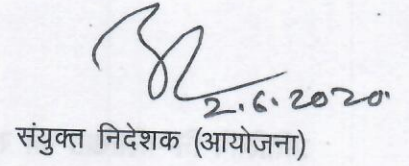 2.6.2020.
संयुक्त निदेशक (आयोजना)